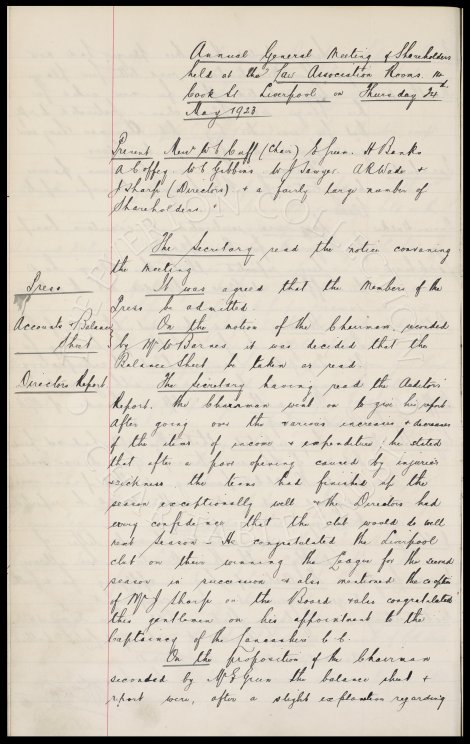 Annual General Meeting of Shareholders
held at the Law Association Rooms 14
Cook St. Liverpool on Thursday 24th
May 1923
Present Messrs W C Cuff (Chair) E Green. H Banks
A Coffey. W C Gibbins. W J Sawyer. A R Wade &
J Sharp (Directors) & a fairly large number of
Shareholders.
The Secretary read the notice convening
the meeting
Press
It was agreed that the Members of the
Press be admitted.
Accounts & Balance
Sheet
On the motion of the Chairman, seconded
by Mr W Barnes it was decided that the
Balance Sheet be taken as read.
Directors Report
The Secretary having read the Auditors'
Report. The Chairman went on to give his report.
After going over the various increases & decreases
of the items of income & expenditure, he stated
that after a poor opening caused by injuries
& sickness the team had finished up the
season exceptionally well & the Directors had
every confidence that the club would do well
next season – He congratulated the Liverpool
club on their winning the League for the second
season in succession & also mentioned the cooption
of Mr J Sharp on the Board & also congratulated
this gentleman on his appointment to the
Captaincy of the Lancashire C.C.
On the proposition of the Chairman
seconded by Mr E Green the balance sheet &
report were, after a slight explanation regarding